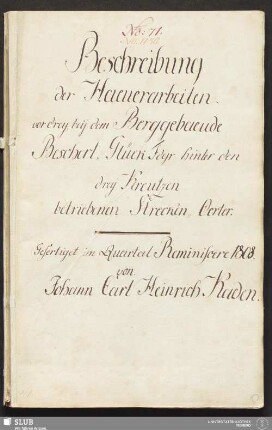 No: 71.
Beschreibung
der Heuerarbeiten
vor drey beÿ dem Berggebaeude
Bescheert Glück Fdgr. hinter den
dreÿ Kreutzen
betriebenen Strecken Oerter.
Gefertiget im Quartal Reminiscere 1808.
von
Johann Carl Heinrich Kaden.
SLUB